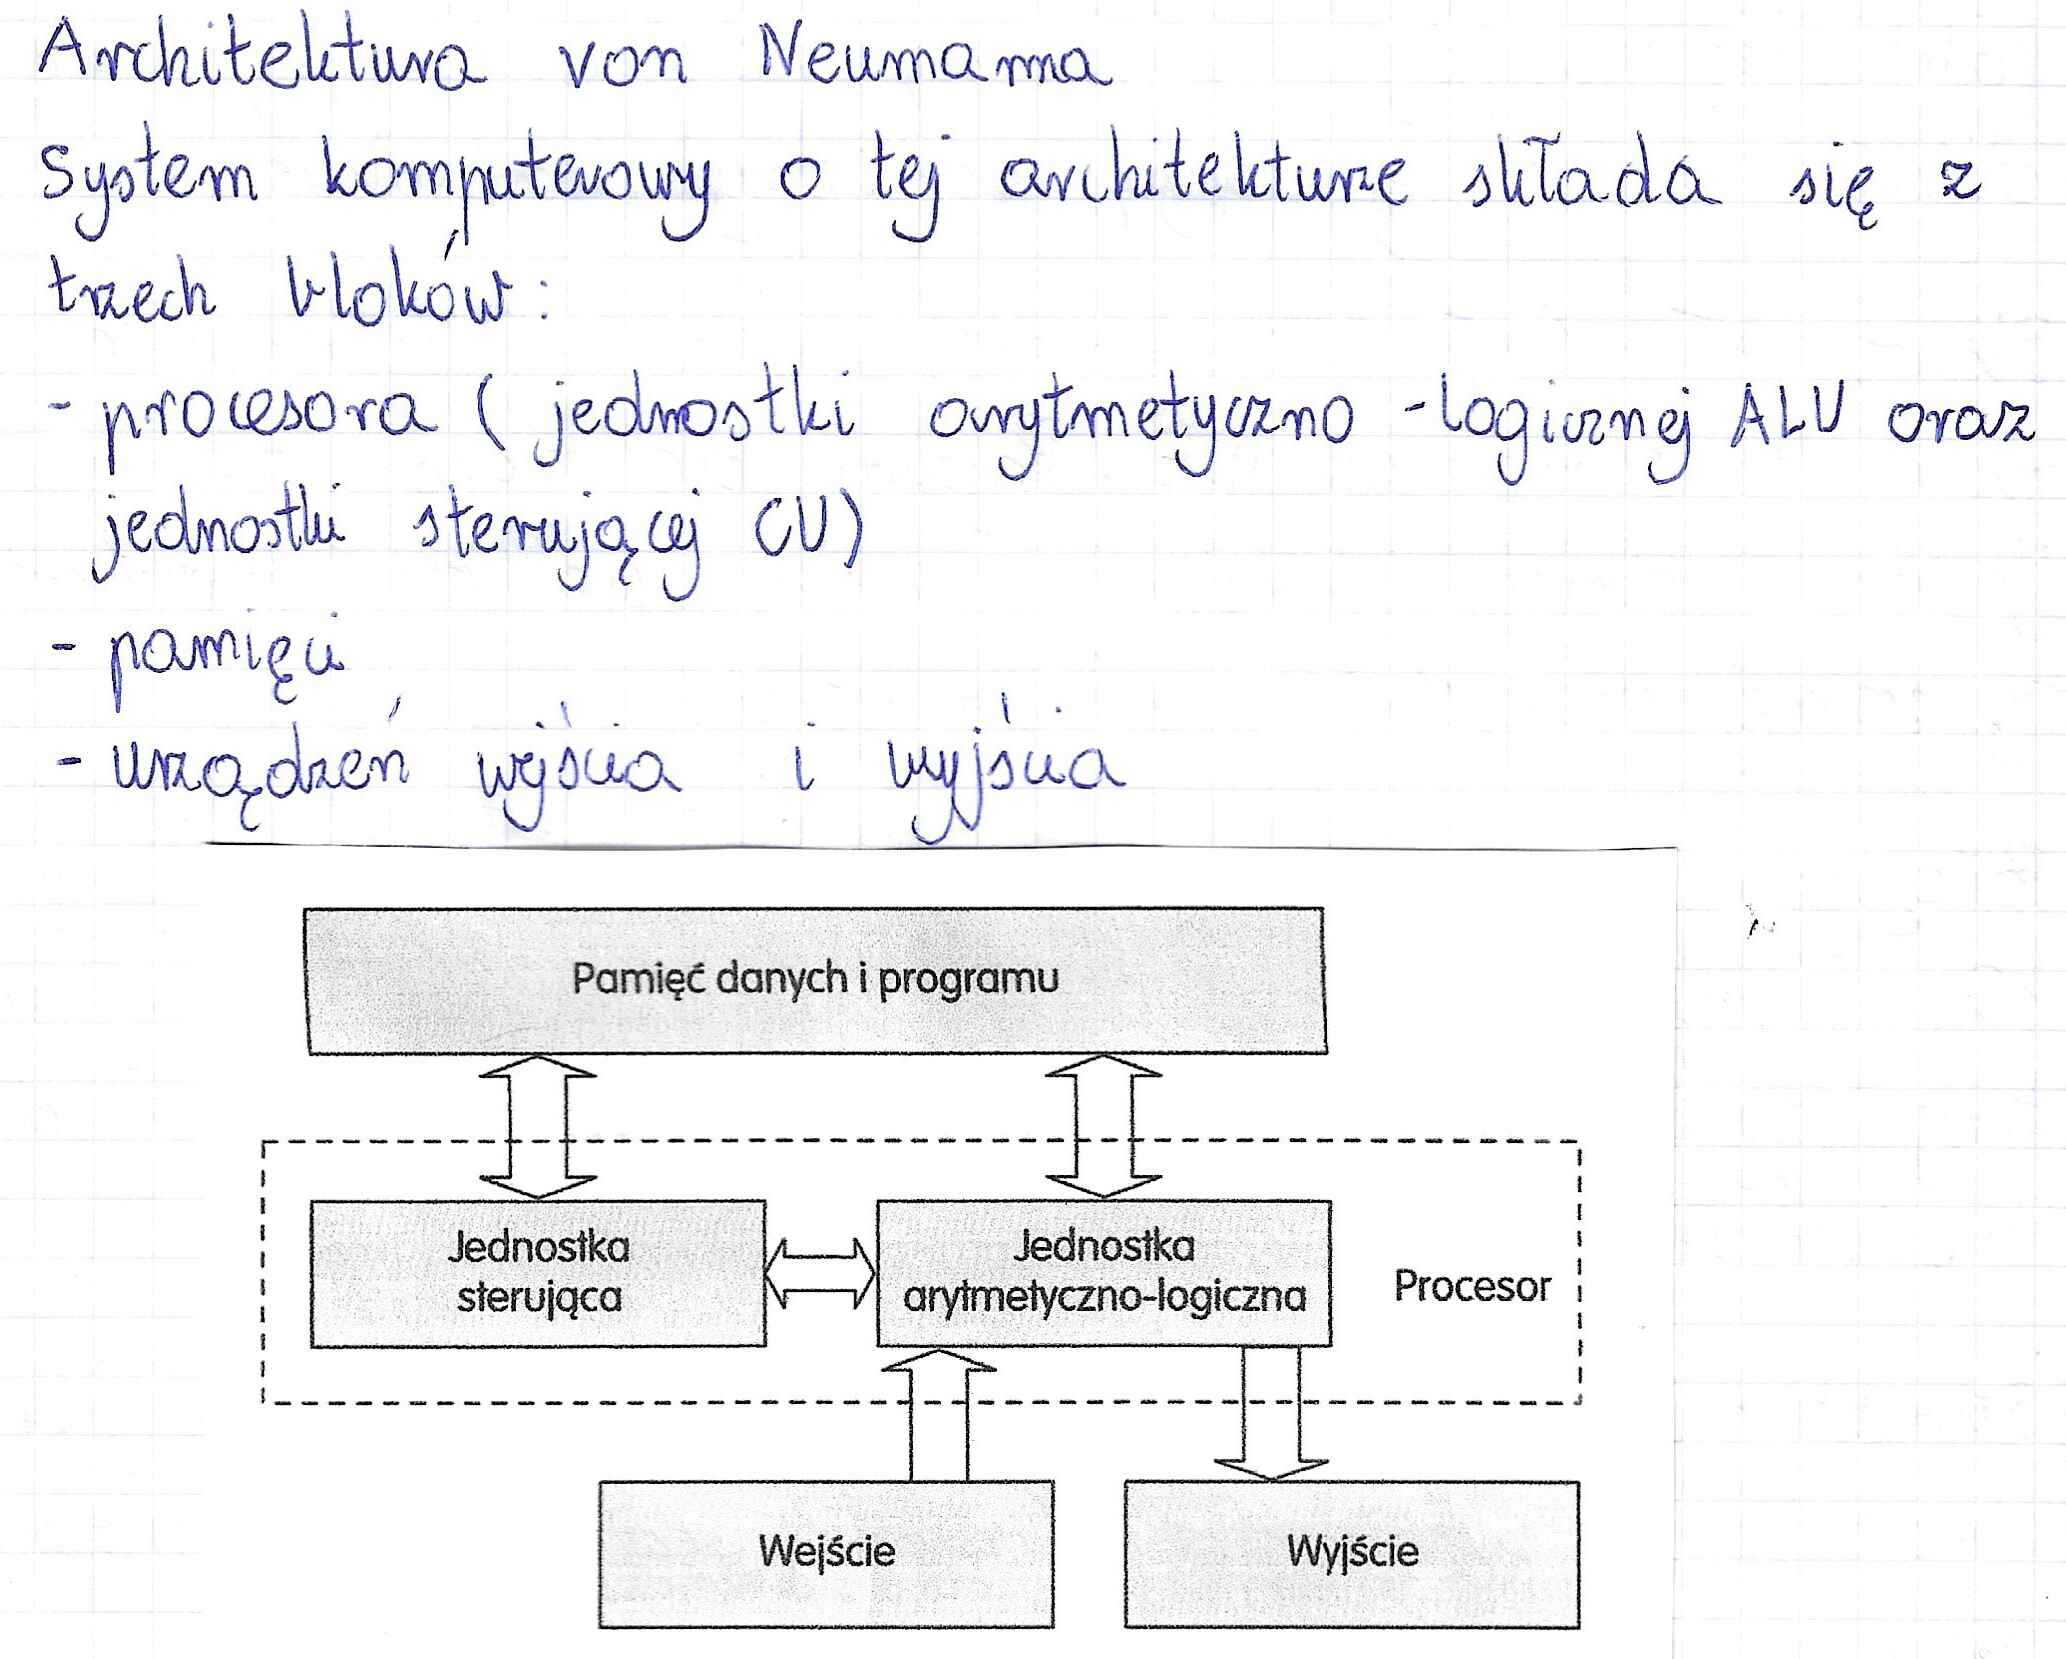 Architektura von Neumanna
System komputerowy o tej architekturze składa się z
trzech bloków:
- procesora (jednostki arytmetyczno-logicznej ALU oraz
jednostki sterującej CU)
- pamięci
- urządzeń wejścia i wyjścia
Pamięć danych i programu
Jednostka
sterująca
Jednostka
arytmetyczno-logiczna
Procesor
Wejście
Wyjście